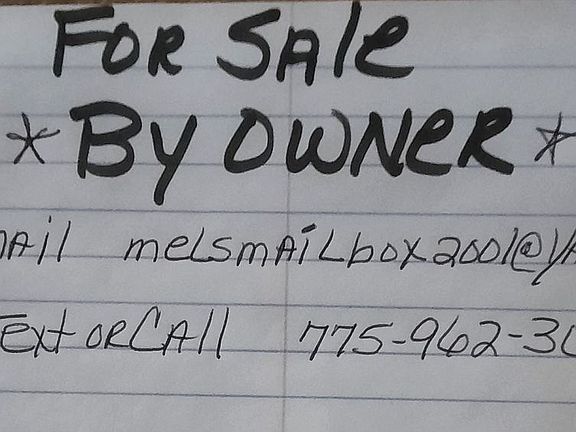 FOR SAle
*BY OWNeR*
mAil melsmAiLbox2001@yA
Text OR CAll 775-962-30